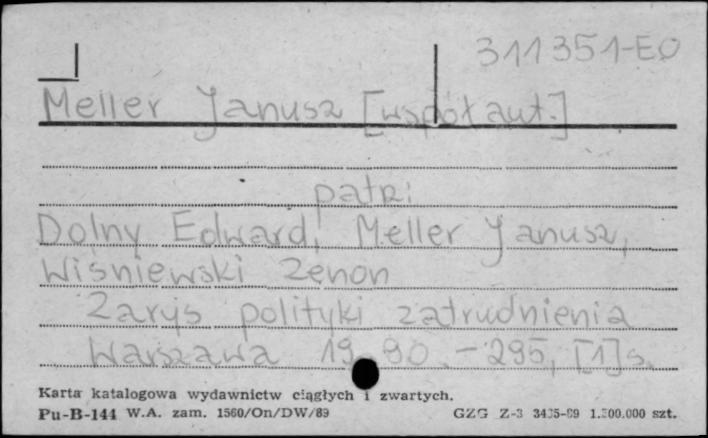 311351-EO
Meller Janusz [współaut.]
patrz:
Dolny Edward, Meller Janusz,
Wiśniewski Zenon
Zarys polityki zatrudnienia
Warszawa 1990. - 295, [1] s.
Karta katalogowa wydawnictw ciągłych i zwartych.
Pu-B-144 W.A. zam. 1560/On/DW/89 GZG Z-3 3435-89 1.500.000 szt.